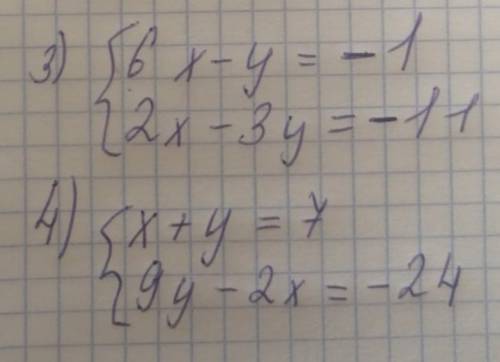 3) { 6x - y = -1
2x - 3y = -11
4) { x + y = 7
9y - 2x = -24